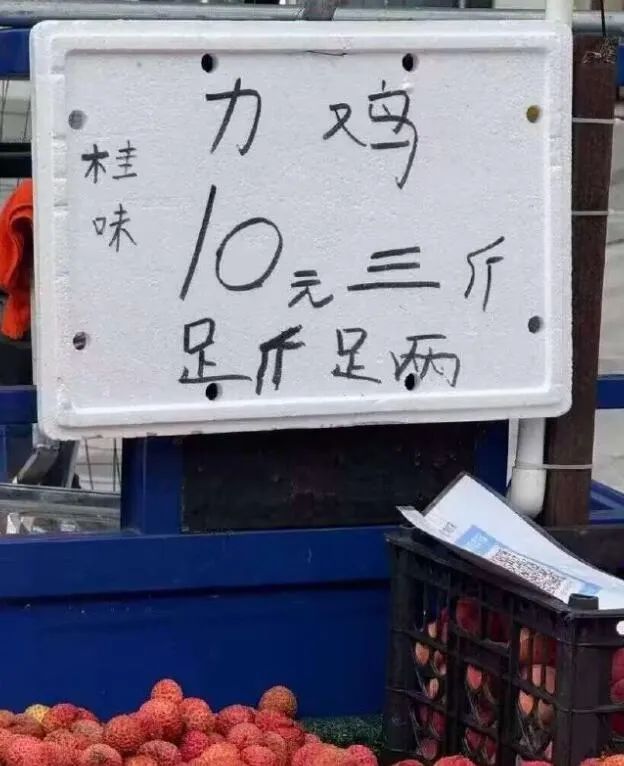 力鸡
桂味
10元三斤
足斤足两